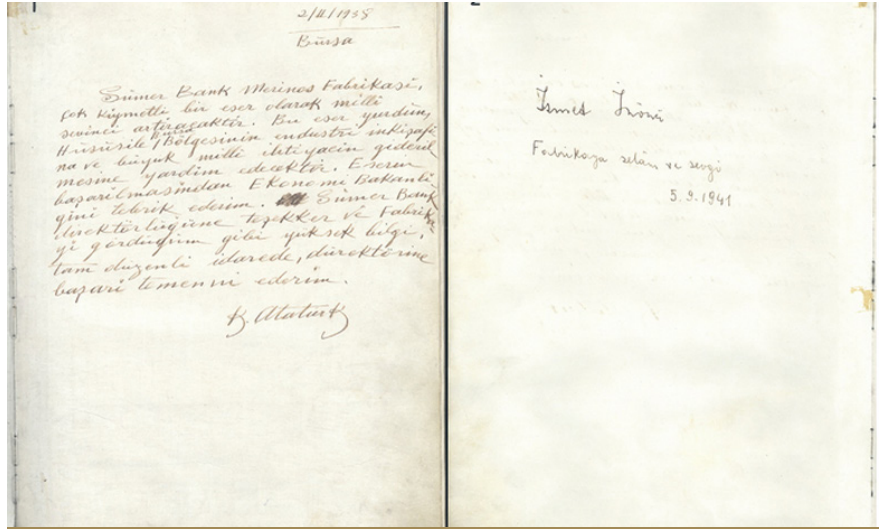 1
2/II/1938
Bursa
Sümer Bank Merinos Fabrikasi,
çok kıymetli bir eser olarak milli
sevinci artıracaktır. Bu eser yurdun,
Hususile Bursa Bölgesinin endüstri inkişafi
na ve büyük milli ihtiyacin gideril
mesine yardim edecektir. Eserin
başarilmasindan Ekonomi Bakanli
ğini tebrik ederim. Sümer Bank
direktörlüğüne teşekkür ve Fabrika
yi gördüğüm gibi yüksek bilgi,
tam düzenli idarede, direktörine
başari temenni ederim.
K. Atatürk
2
İsmet İnönü
Fabrikaya selâm ve sevgi
5.9.1941